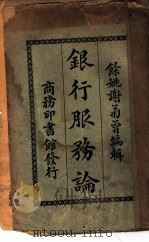 餘姚謝菊曾編輯
銀行服務論
商務印書館發行